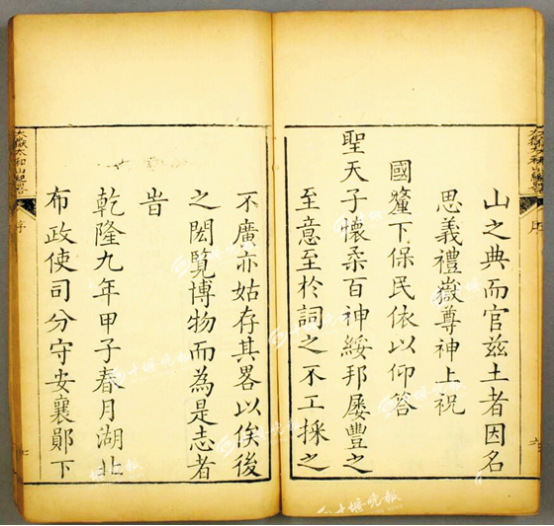 山之典而官兹土者因名
思義禮嶽尊神上祝
國釐下保民依以仰答
聖天子懷柔百神綏邦屢豐之
至意至於詞之不工採之
不廣亦姑存其畧以俟後
之閎覽博物而為是志者
旹
乾隆九年甲子春月湖北
布政使司分守安襄鄖下
太嶽太和山
序
十堰晚报